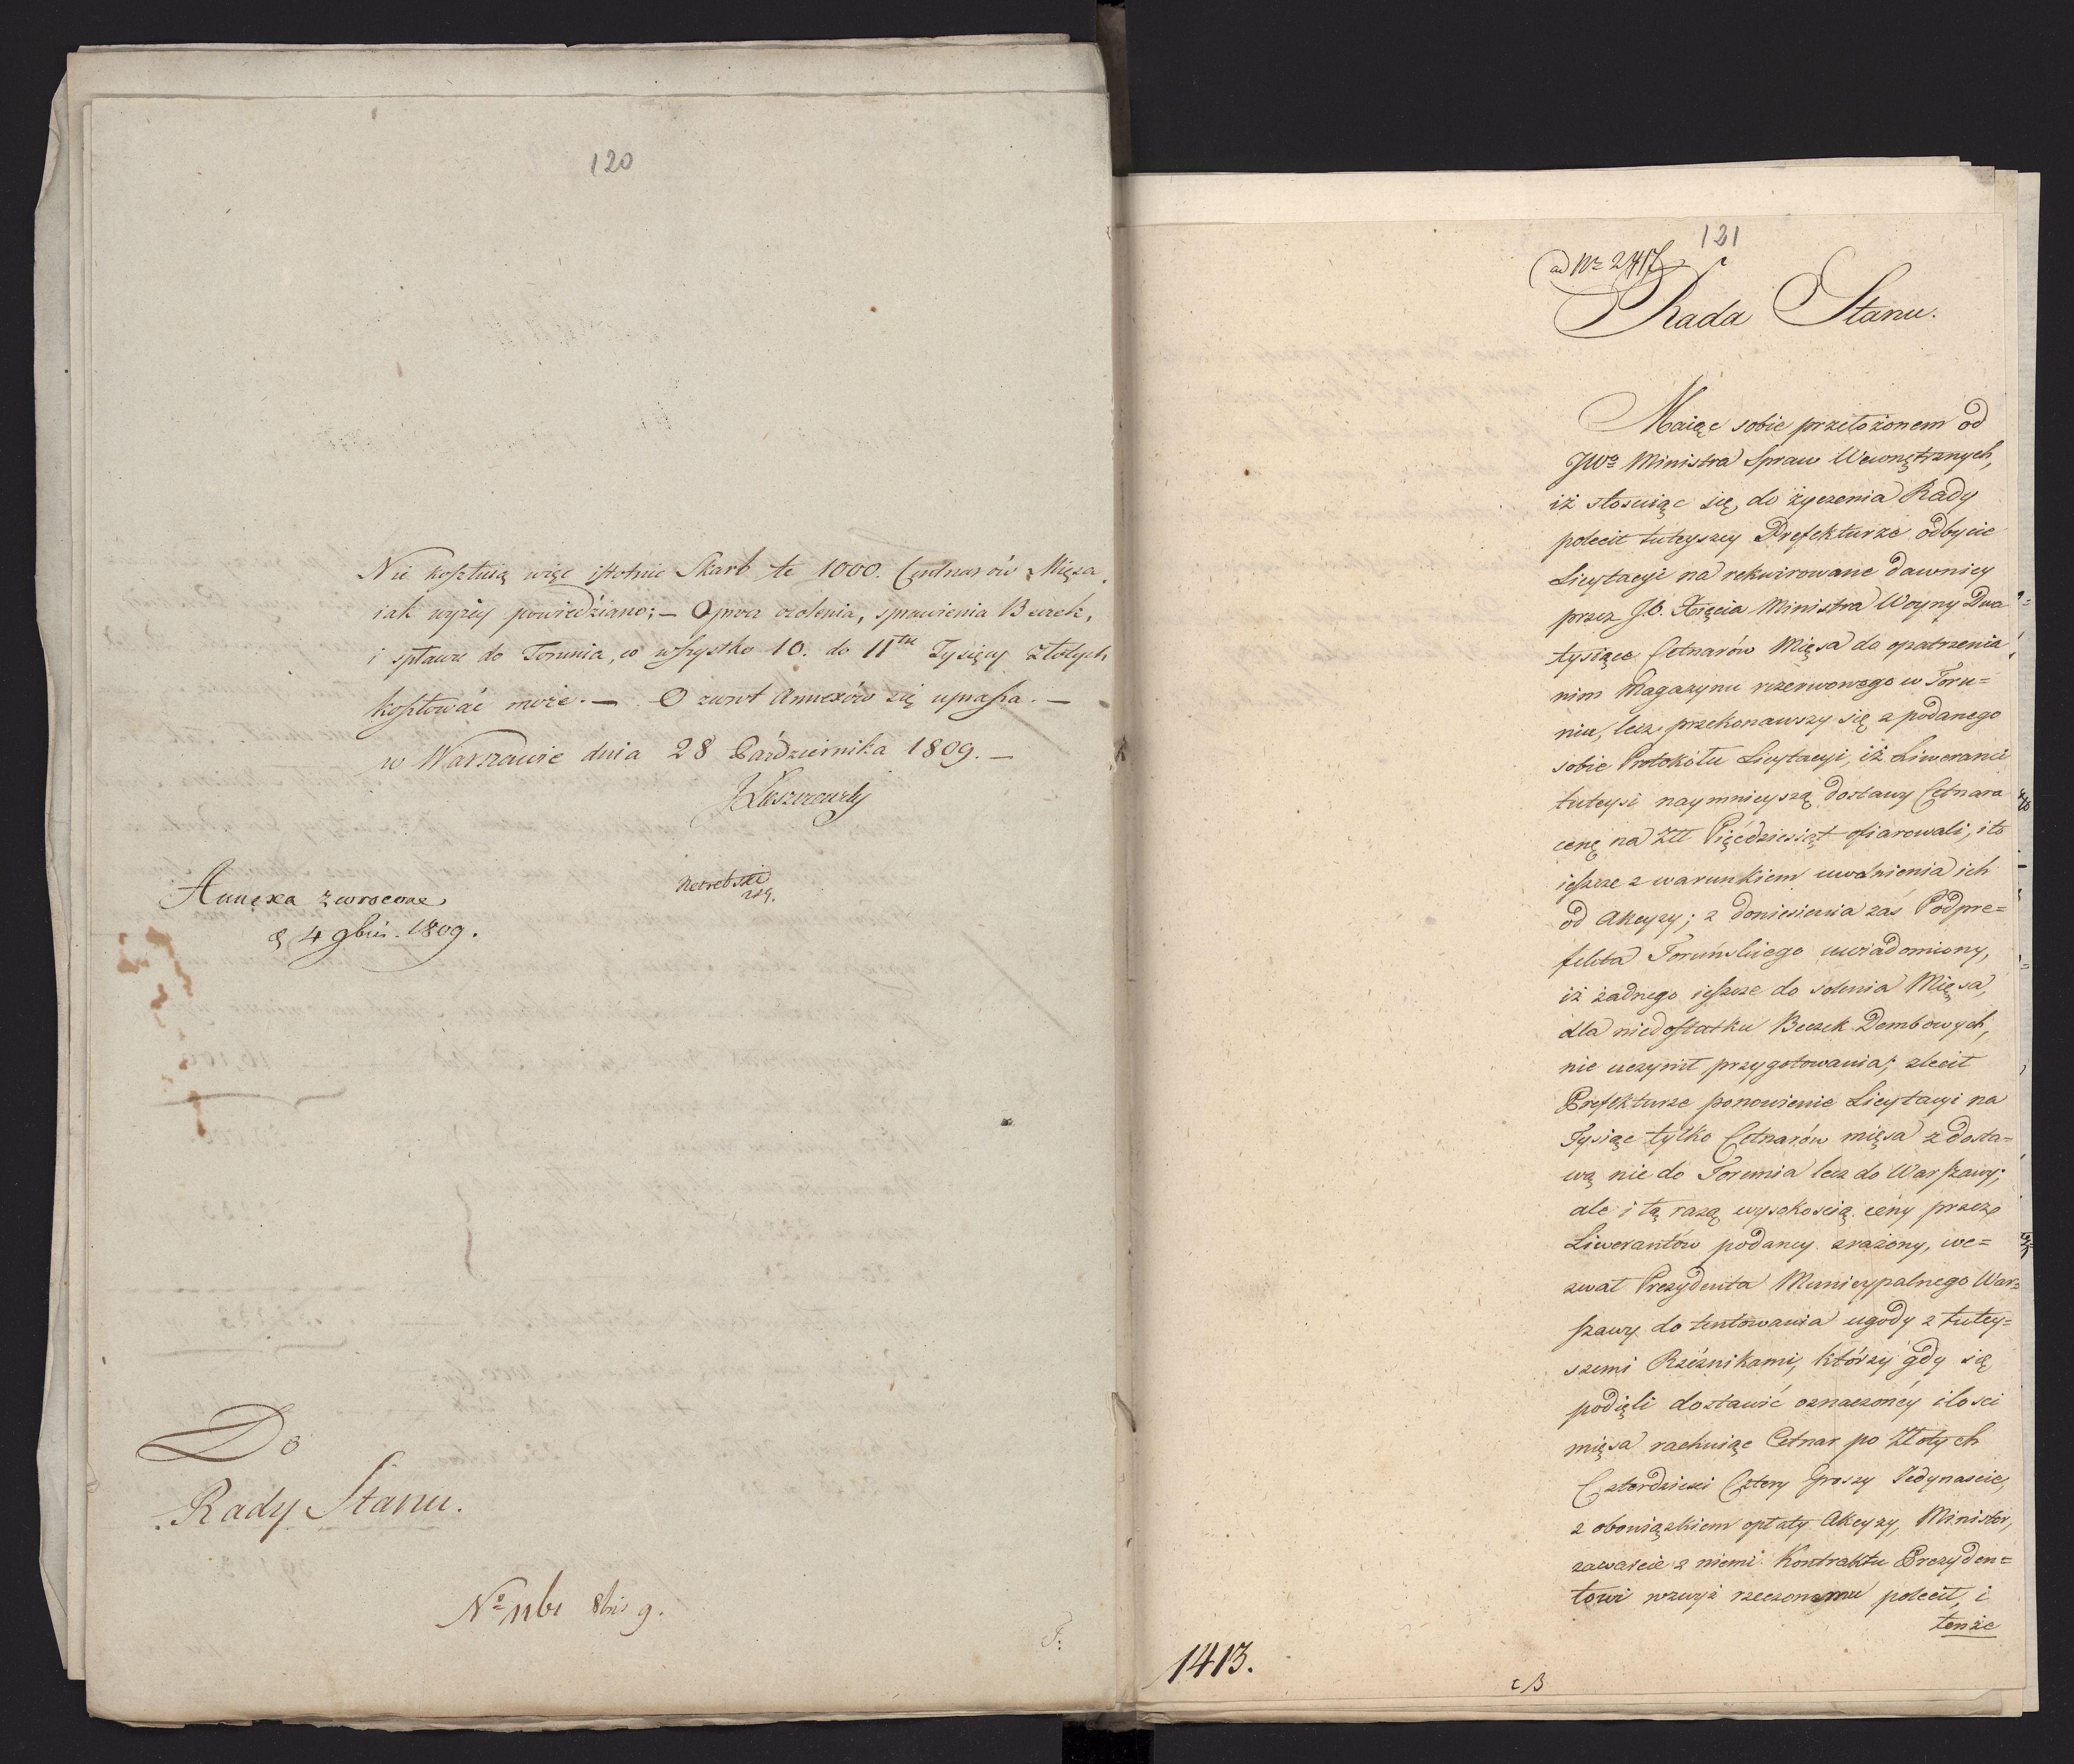 120
Nie kosztuią więc istotnie Skarb te 1000. Centnarów Mięsa,
iak wyżey powiedziano; — Oprócz osolenia, sprawienia Beczek,
i spławu do Torunia, co wszystko 10. do 11tu Tysięcy Złotych
kosztować może. — O zwrot Annexów się uprasza. —
w Warszawie dnia 28 Października 1809. —
JŁuszczewski
Netrebski
Annexa zwrocone
d 4 9bris. 1809.
Do
Rady Stanu.
No 1161 8bris 9.
F:
121
ad Nr 2417
Rada Stanu.
Maiąc sobie przełożonem od
JWo Ministra Spraw Wewnętrznych,
iż stosuiąc się do życzenia Rady
polecił tuteyszey Prefekturze odbycie
Licytacyi na rekwirowane dawniey
przez J.O. Xięcia Ministra Woyny Dwa
tysiące Cetnarów Mięsa do opatrzenia
nim Magazynu rezerwowego w Toru=
niu, lecz przekonawszy się z podanego
sobie Protokółu Licytacyi, iż Liweranci
tuteysi naymnieyszą dostawy Cetnara
cenę na Złł Pięćdziesiąt ofiarowali, i to
ieszcze z warunkiem uwolnienia ich
od Akcyzy; z doniesienia zaś Podpre=
fekta Toruńskiego uwiadomiony,
iż żadnego ieszcze do solenia Mięsa,
dla niedostatku Beczek Dembowych,
nie uczynił przygotowania; zlecił
Prefekturze ponowienie Licytacyi na
Tysiąc tylko Cetnarów mięsa z dosta=
wą nie do Torunia lecz do Warszawy;
ale i tą razą wysokością ceny przez
Liwerantów podaney zrażony, we=
zwał Prezydenta Municypalnego War=
szawy do tentowania ugody z tutey=
szemi Rzeźnikami, którzy gdy się
podięli dostawić oznaczoney ilości
mięsa rachuiąc Cetnar po Złotych
Czterdzieści Cztery Groszy Jedynaście,
z obowiązkiem opłaty Akcyzy, Minister,
zawarcie z niemi Kontraktu Prezyden=
towi wzwyż rzeczonemu polecił, i
tenże
1413.